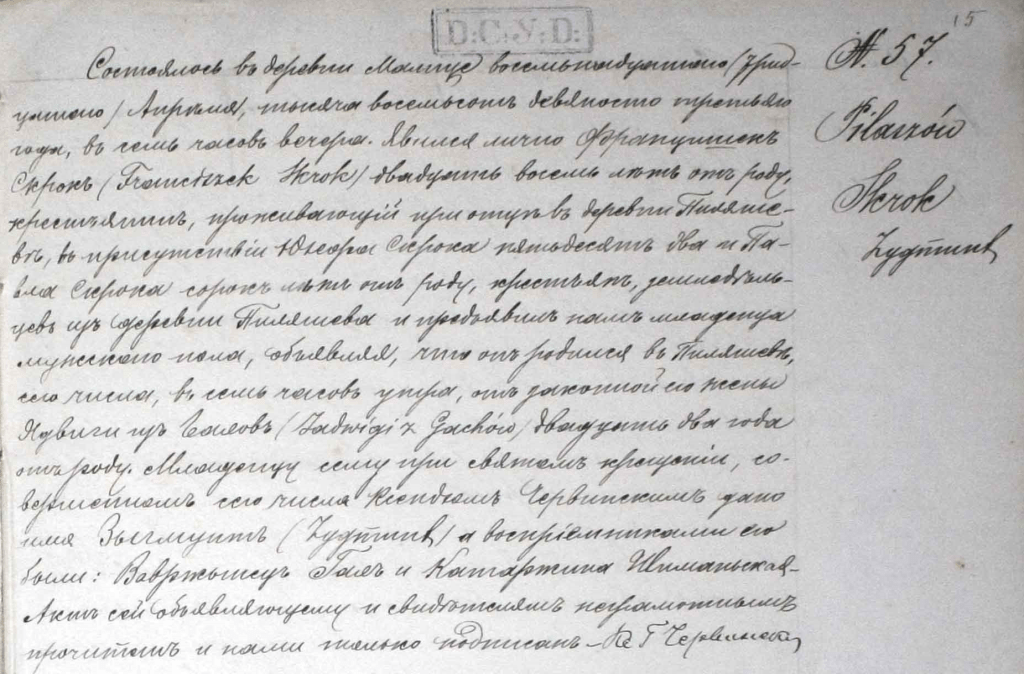 15
D:C:У:D:
№ 57.
Pilaszów
Skrok
Zygmunt
Состоялось въ деревни Малице восемьнадцатаго /трид-
цатаго/ Апрѣля, тысяча восемьсотъ девяносто третьяго
года, въ семь часовъ вечера. Явился лично Францишекъ
Скрокъ (Franciszek Skrok) двадцать восемь лѣтъ отъ роду,
крестьянинъ, проживающій при отцѣ въ деревни Пиляше-
вѣ, въ присутствіи Скрока пятьдесятъ два и Па-
вла Скрока сорокъ лѣтъ отъ роду, крестьянъ, земледѣль-
цевъ изъ деревни Пиляшева и предъявилъ намъ младенца
мужскаго пола, объявляя, что онъ родился въ Пиляшевѣ,
сего числа, въ семь часовъ утра, отъ законной его жены
Ядвиги изъ (Jadwigi z Gachów) двадцать два года
отъ роду. Младенцу сему при святомъ крещеніи, со-
вершенномъ сего числа Ксендзомъ Червинскимъ дано
имя Зыгмунтъ (Zygmunt) а воспріемниками его
были: Вавржынецъ Гаяъ и Катаржина Шиманьская.
Актъ сей объявляющему и свидѣтелямъ неграмотнымъ
прочитанъ и нами только подписанъ. Кс Г Червински